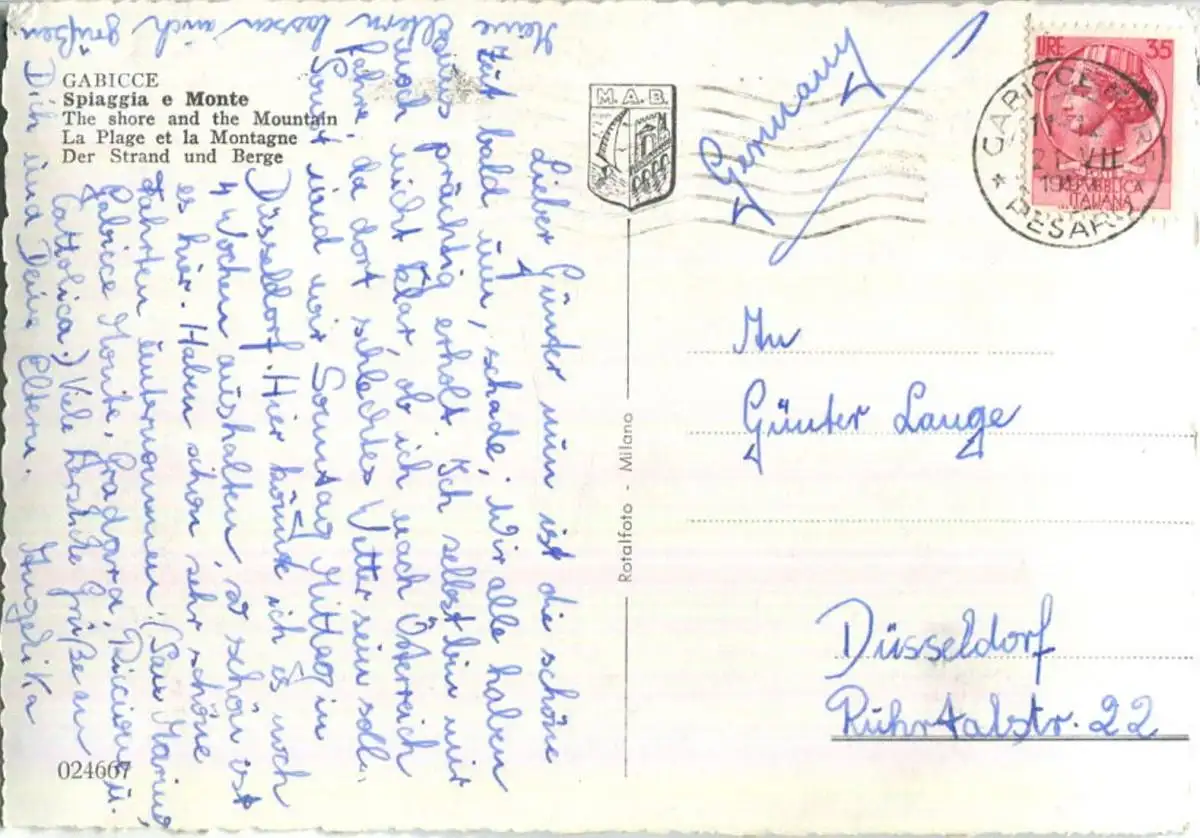 GABICCE
Spiaggia e Monte
The shore and the Mountain
La Plage et la Montagne
Der Strand und Berge
M.A.B.
Germany
LIRE 35
POSTE
REPUBBLICA
ITALIANA
GABICCE MARE
21 VII
* PESARO
Lieber Günter nun ist die schöne
Zeit bald um, schade, wir alle haben
uns prächtig erholt. Ich selbst bin mir
noch nicht klar, ob ich nach Österreich
fahre, da dort schlechtes Wetter sein soll.
Sonst sind wir Sonntag Mittag in
Düsseldorf. Hier könnt ich es noch
4 Wochen aushalten, so schön ist
es hier. Haben schon sehr schöne
Fahrten unternommen. (San Marino,
Gabicce Monte, Gradara, Riccione u.
Cattolica.) Viele herzliche Grüße an
Dich und Deine Eltern. Angelika
Meine Eltern lassen auch grüßen.
An
Günter Lange
Düsseldorf
Ruhrtalstr. 22
Rotalfoto - Milano
024667